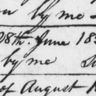 by me
28th. June 18
by me
of August 1